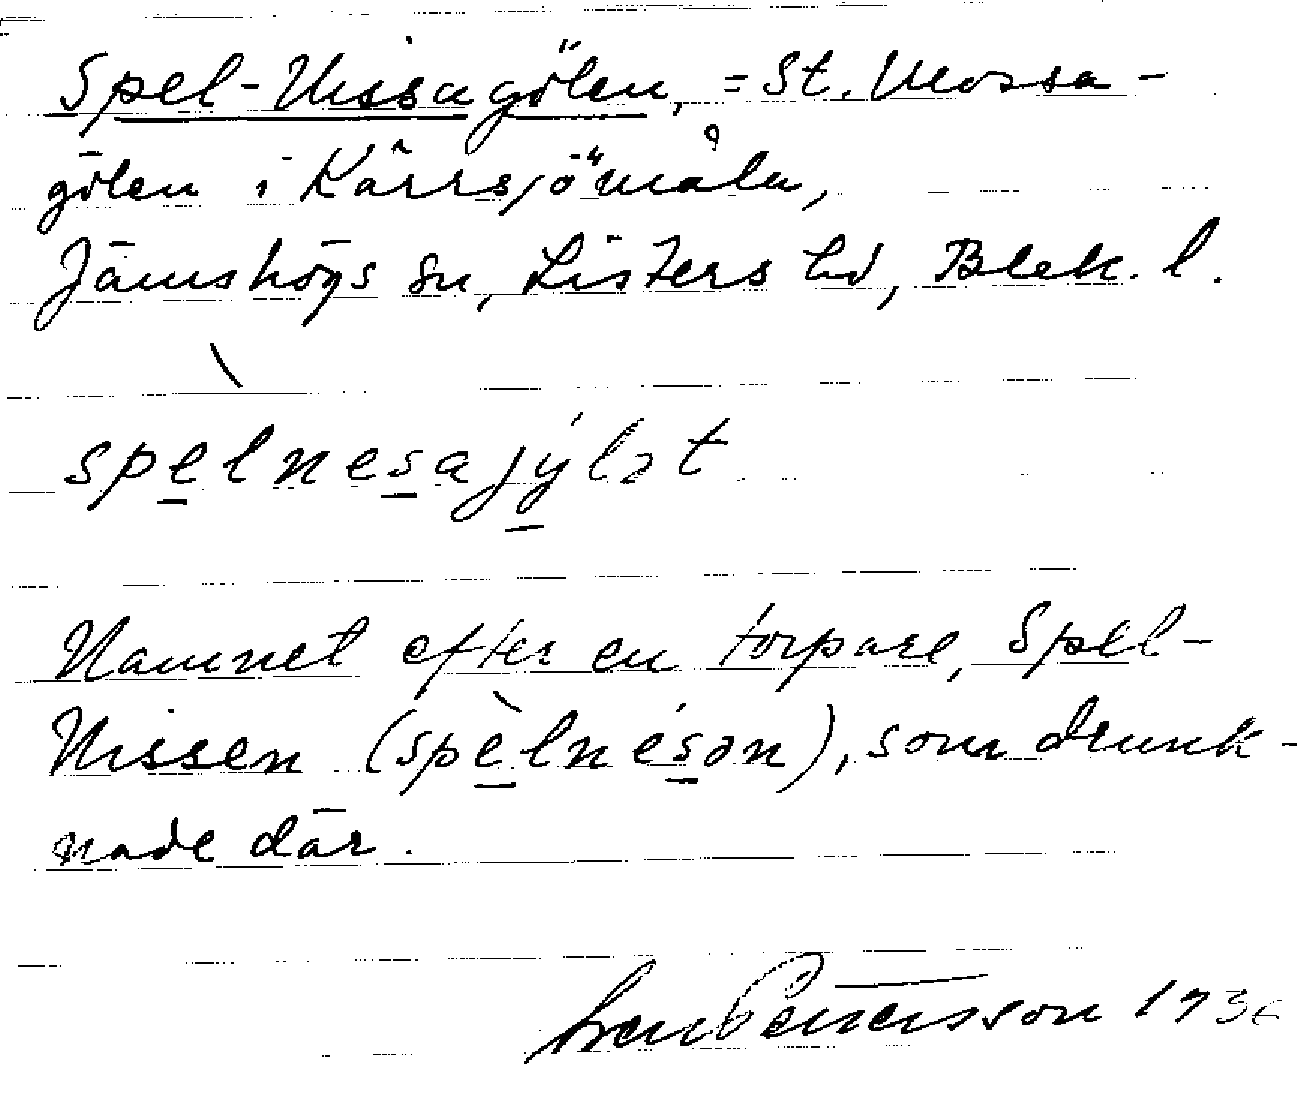 Spel-Nissagölen, = St. Mossa-
gölen i Kärrsjömåla,
Jämshögs sn, Listers hd, Blek. l.
spelnesajýlət
Namnet efter en torpare, Spel-
Nissen (spèlnésən), som drunk-
nade där.
Sven Pettersson 1936